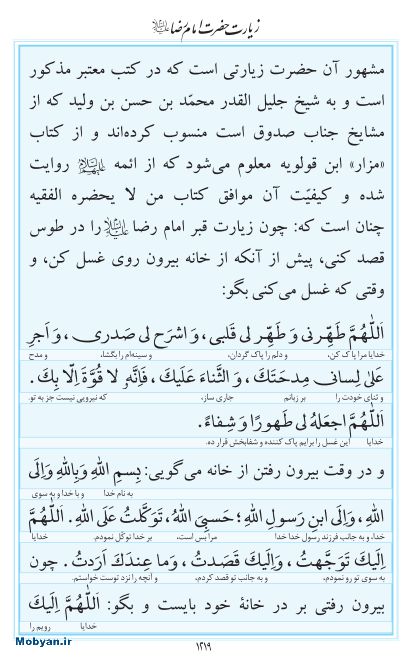 زیارت حضرت امام رضا علیه‌السلام
مشهور آن حضرت زیارتی است که در کتب معتبر مذکور
است و به شیخ جلیل القدر محمّد بن حسن بن ولید که از
مشایخ جناب صدوق است منسوب کرده‌اند و از کتاب
«مزار» ابن قولویه معلوم می‌شود که از ائمه علیهم‌السلام روایت
شده و کیفیّت آن موافق کتاب من لا یحضره الفقیه
چنان است که: چون زیارت قبر امام رضا علیه‌السلام را در طوس
قصد کنی، پیش از آنکه از خانه بیرون روی غسل کن، و
وقتی که غسل می‌کنی بگو:
اَللّٰهُمَّ طَهِّرنی وَ طَهِّر لی قَلبی، وَ اشرَح لی صَدری، وَ اَجرِ
خدایا مرا پاک کن، و دلم را پاک گردان، و سینه‌ام را بگشا، و مدح
عَلیٰ لِسانی مِدحَتَكَ، وَ الثَّناءَ عَلَیكَ، فَاِنَّهُ لا قُوَّةَ اِلّا بِكَ.
و ثنای خودت را بر زبانم جاری ساز، که نیرویی نیست جز به تو.
اَللّٰهُمَّ اجعَلهُ لی طَهورًا وَ شِفاءً.
خدایا این غسل را برایم پاک کننده و شفابخش قرار ده.
و در وقت بیرون رفتن از خانه می‌گویی: بِسمِ اللهِ وَبِاللهِ وَاِلَی
به نام خدا و با خدا و به سوی
اللهِ، وَاِلَی ابنِ رَسولِ اللهِ؛ حَسبِیَ اللهُ، تَوَکَّلتُ عَلَی اللهِ. اَللّٰهُمَّ
خدا، و به جانب فرزند رسول خدا خدا مرا بس است، بر خدا توکّل نمودم. خدایا
اِلَیكَ تَوَجَّهتُ، وَاِلَیكَ قَصَدتُ، وَما عِندَكَ اَرَدتُ. چون
به سوی تو رو نمودم، و به جانب تو قصد کردم، و آنچه را نزد توست خواستم.
بیرون رفتی بر در خانهٔ خود بایست و بگو: اَللّٰهُمَّ اِلَیكَ
خدایا رویم را
Mobyan.ir
۱۲۱۹